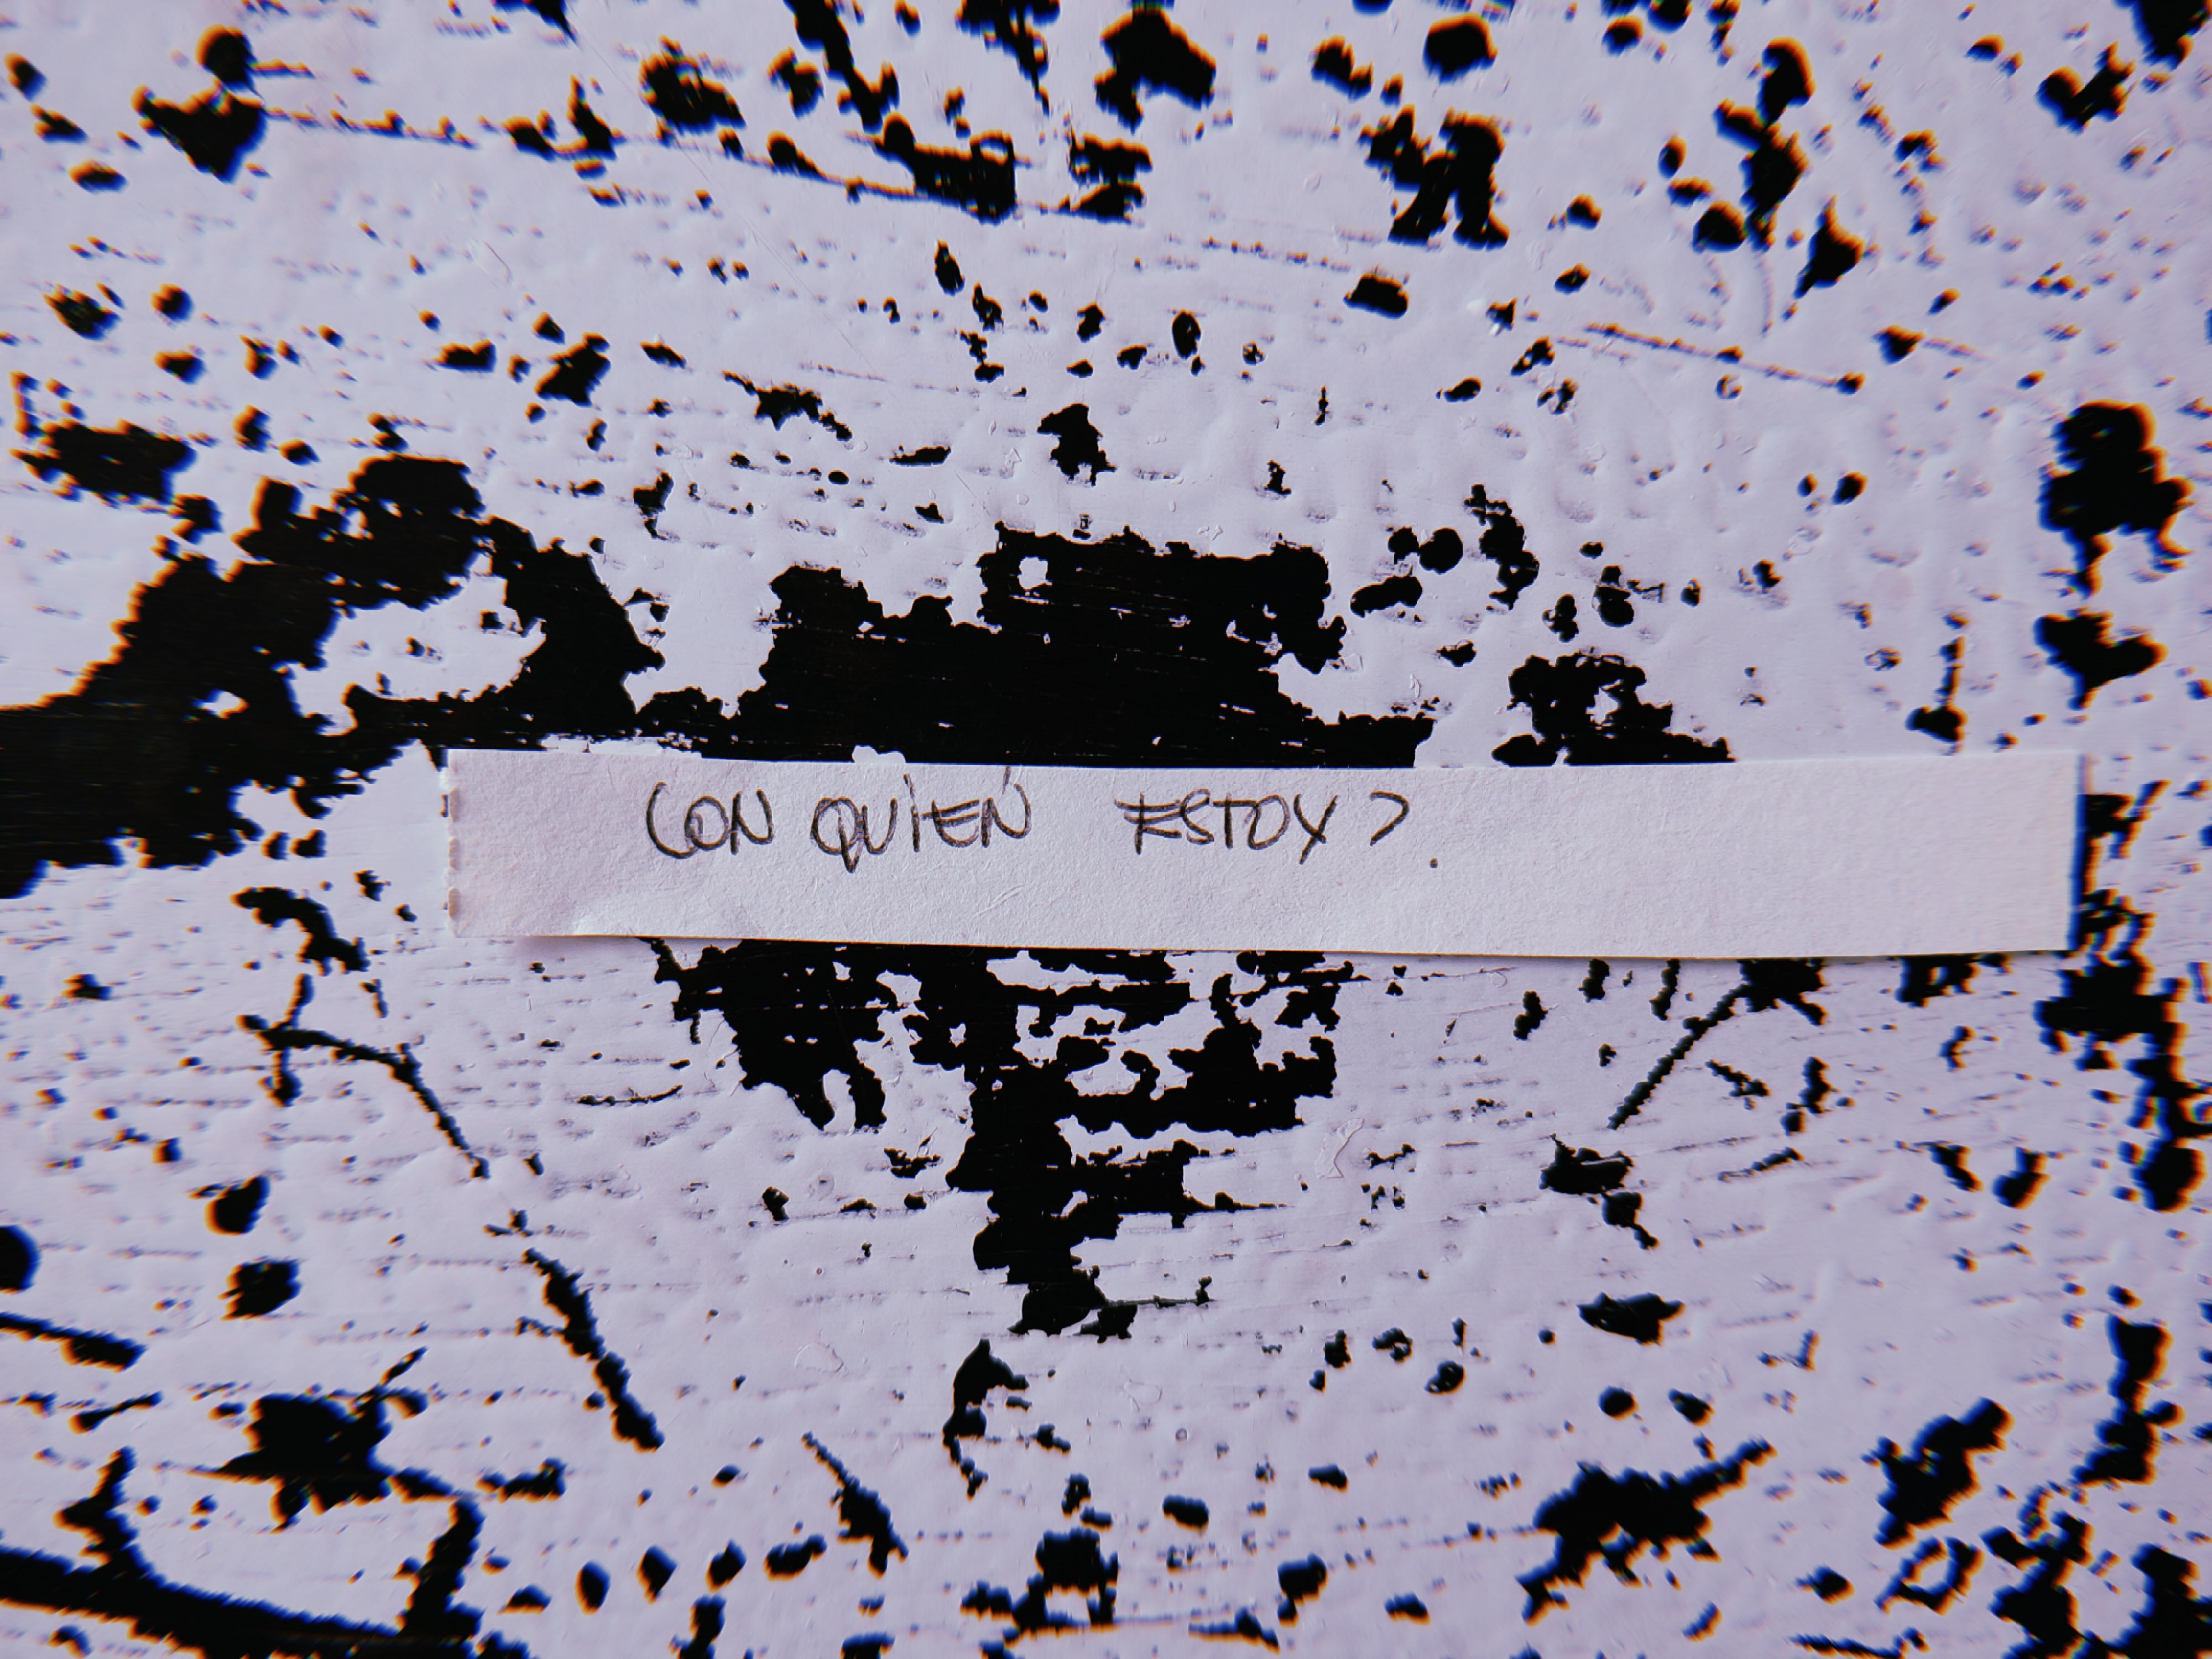 CON QUIÉN ESTOY?